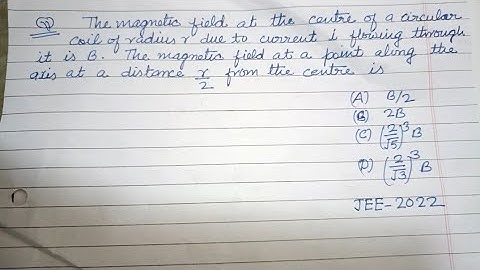 Q The magnetic field at the centre of a circular
coil of radius r due to current i flowing through
it is B. The magnetic field at a point along the
axis at a distance r/2 from the centre is
(A) B/2
(B) 2B
(C) (2/√5)³B
(D) (2/√3)³B
JEE-2022